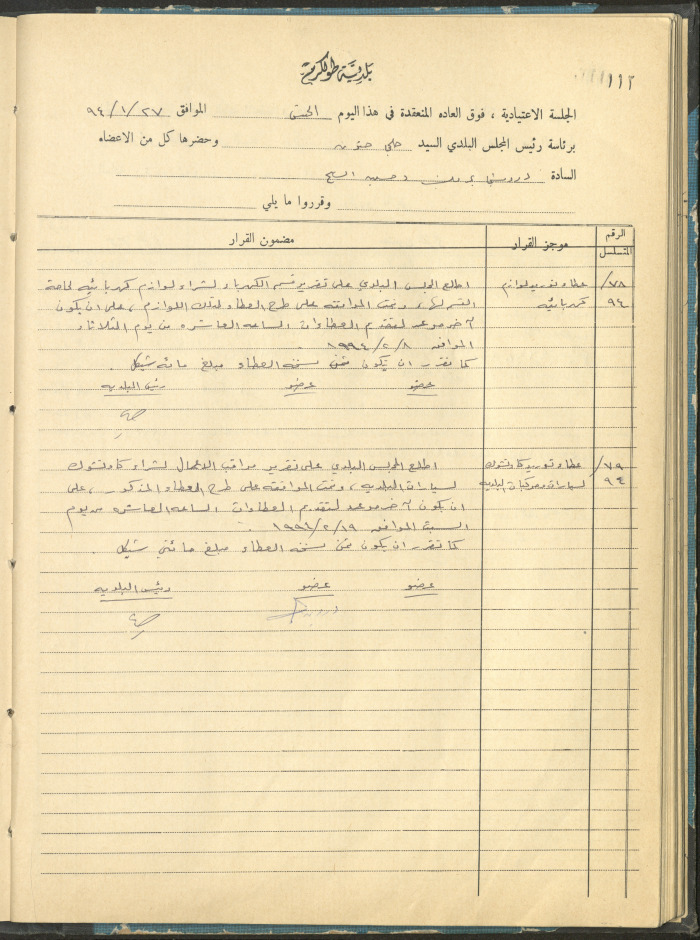 بلدية طولكرم
١١٢
الجلسة الاعتيادية ، فوق العاده المنعقدة في هذا اليوم الموافق ٩٤/١/٢٧
برئاسة رئيس المجلس البلدي السيد حلمي حنون وحضرها كل من الاعضاء
السادة
وقرروا ما يلي
الرقم المتسلسل
موجز القرار
مضمون القرار
٧٨/
٩٤
عطاء توريد لوازم
كهربائيه
اطلع المجلس البلدي على تقرير قسم الكهرباء لشراء لوازم كهربائيه لحاجة
القسم لها، وتمت الموافقه على طرح العطاء لتلك اللوازم ، على ان يكون
آخر موعد لتقديم العطاءات الساعه العاشره من يوم الثلاثاء
الموافق ١٩٩٤/٢/٨ .
كما تقرر ان يكون ثمن نسخة العطاء مبلغ مائة شيكل .
عضو عضو رئيس البلديه
٧٩/
٩٤
عطاء توريد كاوتشوك
لسيارات ومركبات البلديه
اطلع المجلس البلدي على تقرير مراقب الاعمال لشراء كاوتشوك
لسيارات البلديه ، وتمت الموافقه على طرح العطاء المذكور ، على
ان يكون آخر موعد لتقديم العطاءات الساعه العاشره من يوم
السبت الموافق ١٩٩٤/٢/١٩ .
كما تقرر ان يكون ثمن نسخة العطاء مبلغ مائتي شيكل .
عضو عضو رئيس البلديه